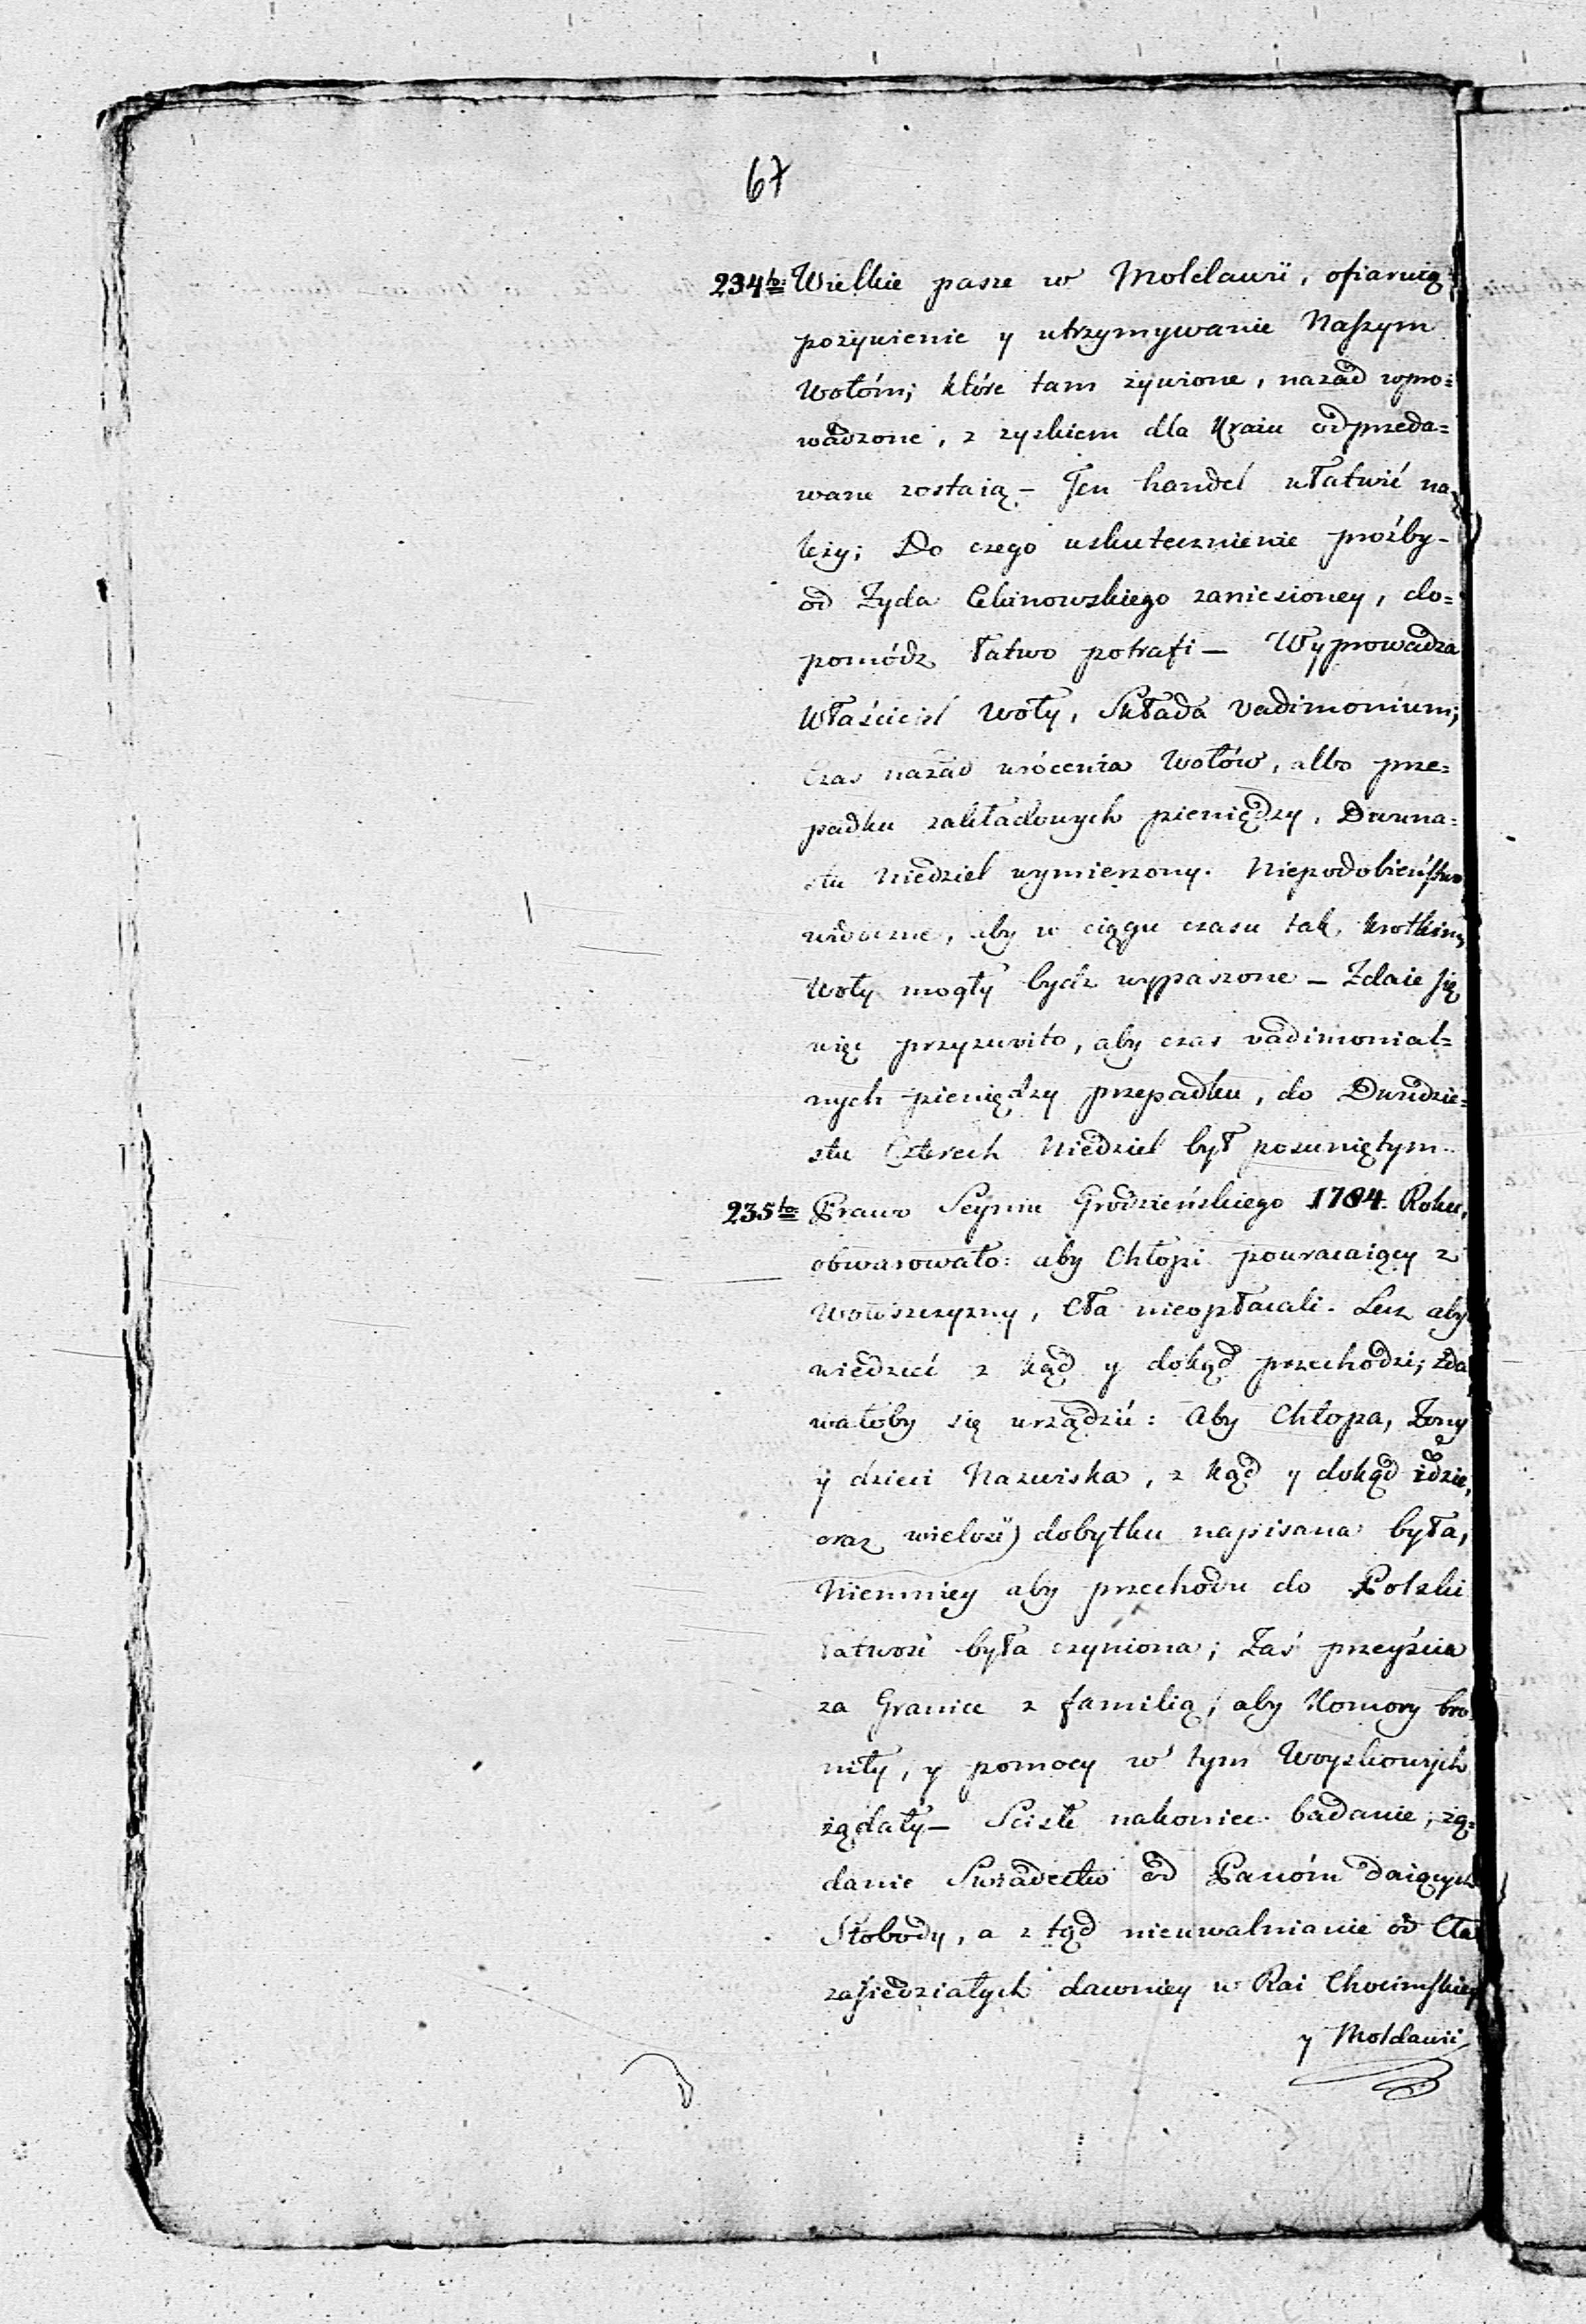 67
234to Wielkie pasze w Mołdawii, ofiaruią
pożywienie y utrzymywanie Naszym
Wołóm; które tam żywione, nazad wpro=
wadzone, z zyskiem dla Kraiu odprzeda=
wane zostaią – Ten handel ułatwić na=
leży; Do czego uskutecznienie proźby
od Żyda Cekinowskiego zaniesioney, do=
pomódz łatwo potrafi – Wyprowadza
Właściciel Woły, Składa Vadimonium;
Czas nazad wrócenia Wołów, albo prze=
padku zakładowych pieniędzy, Dwuna=
stu Niedziel wymierzony. Niepodobieństwo
widoczne, aby w ciągu czasu tak krotkim
Woły mogły bydz wypaszone – Zdaie się
więc przyzwito, aby czas vadimonial=
nych pieniędzy przepadku, do Dwudzie=
stu Czterech Niedziel był posuniętym.
235to Prawo Seymu Grodzieńskiego 1784. Roku,
obwarowało: aby Chłopi powracaiący z
Wołoszczyzny, Cła nieopłacali. Lecz aby
wiedzieć z kąd y dokąd przechodzi; zda
wałoby się urządzić: Aby Chłopa, Żony
y dzieci Nazwiska, z kąd y dokąd idzie,
oraz wielość dobytku napisana była,
Niemniey aby przechodu do Polski
łatwość była czyniona; Zaś przeyścia
za Granice z familią, aby Komory bro
niły, y pomocy w tym Woyskowych
żądały – Scisłe nakoniec badanie, żą=
danie Swiadectw od Panów daiących
Słobody, a z tąd nieuwalnianie od Cła
zasiedziałych dawniey w Rai Chocimskiey
y Mołdawii